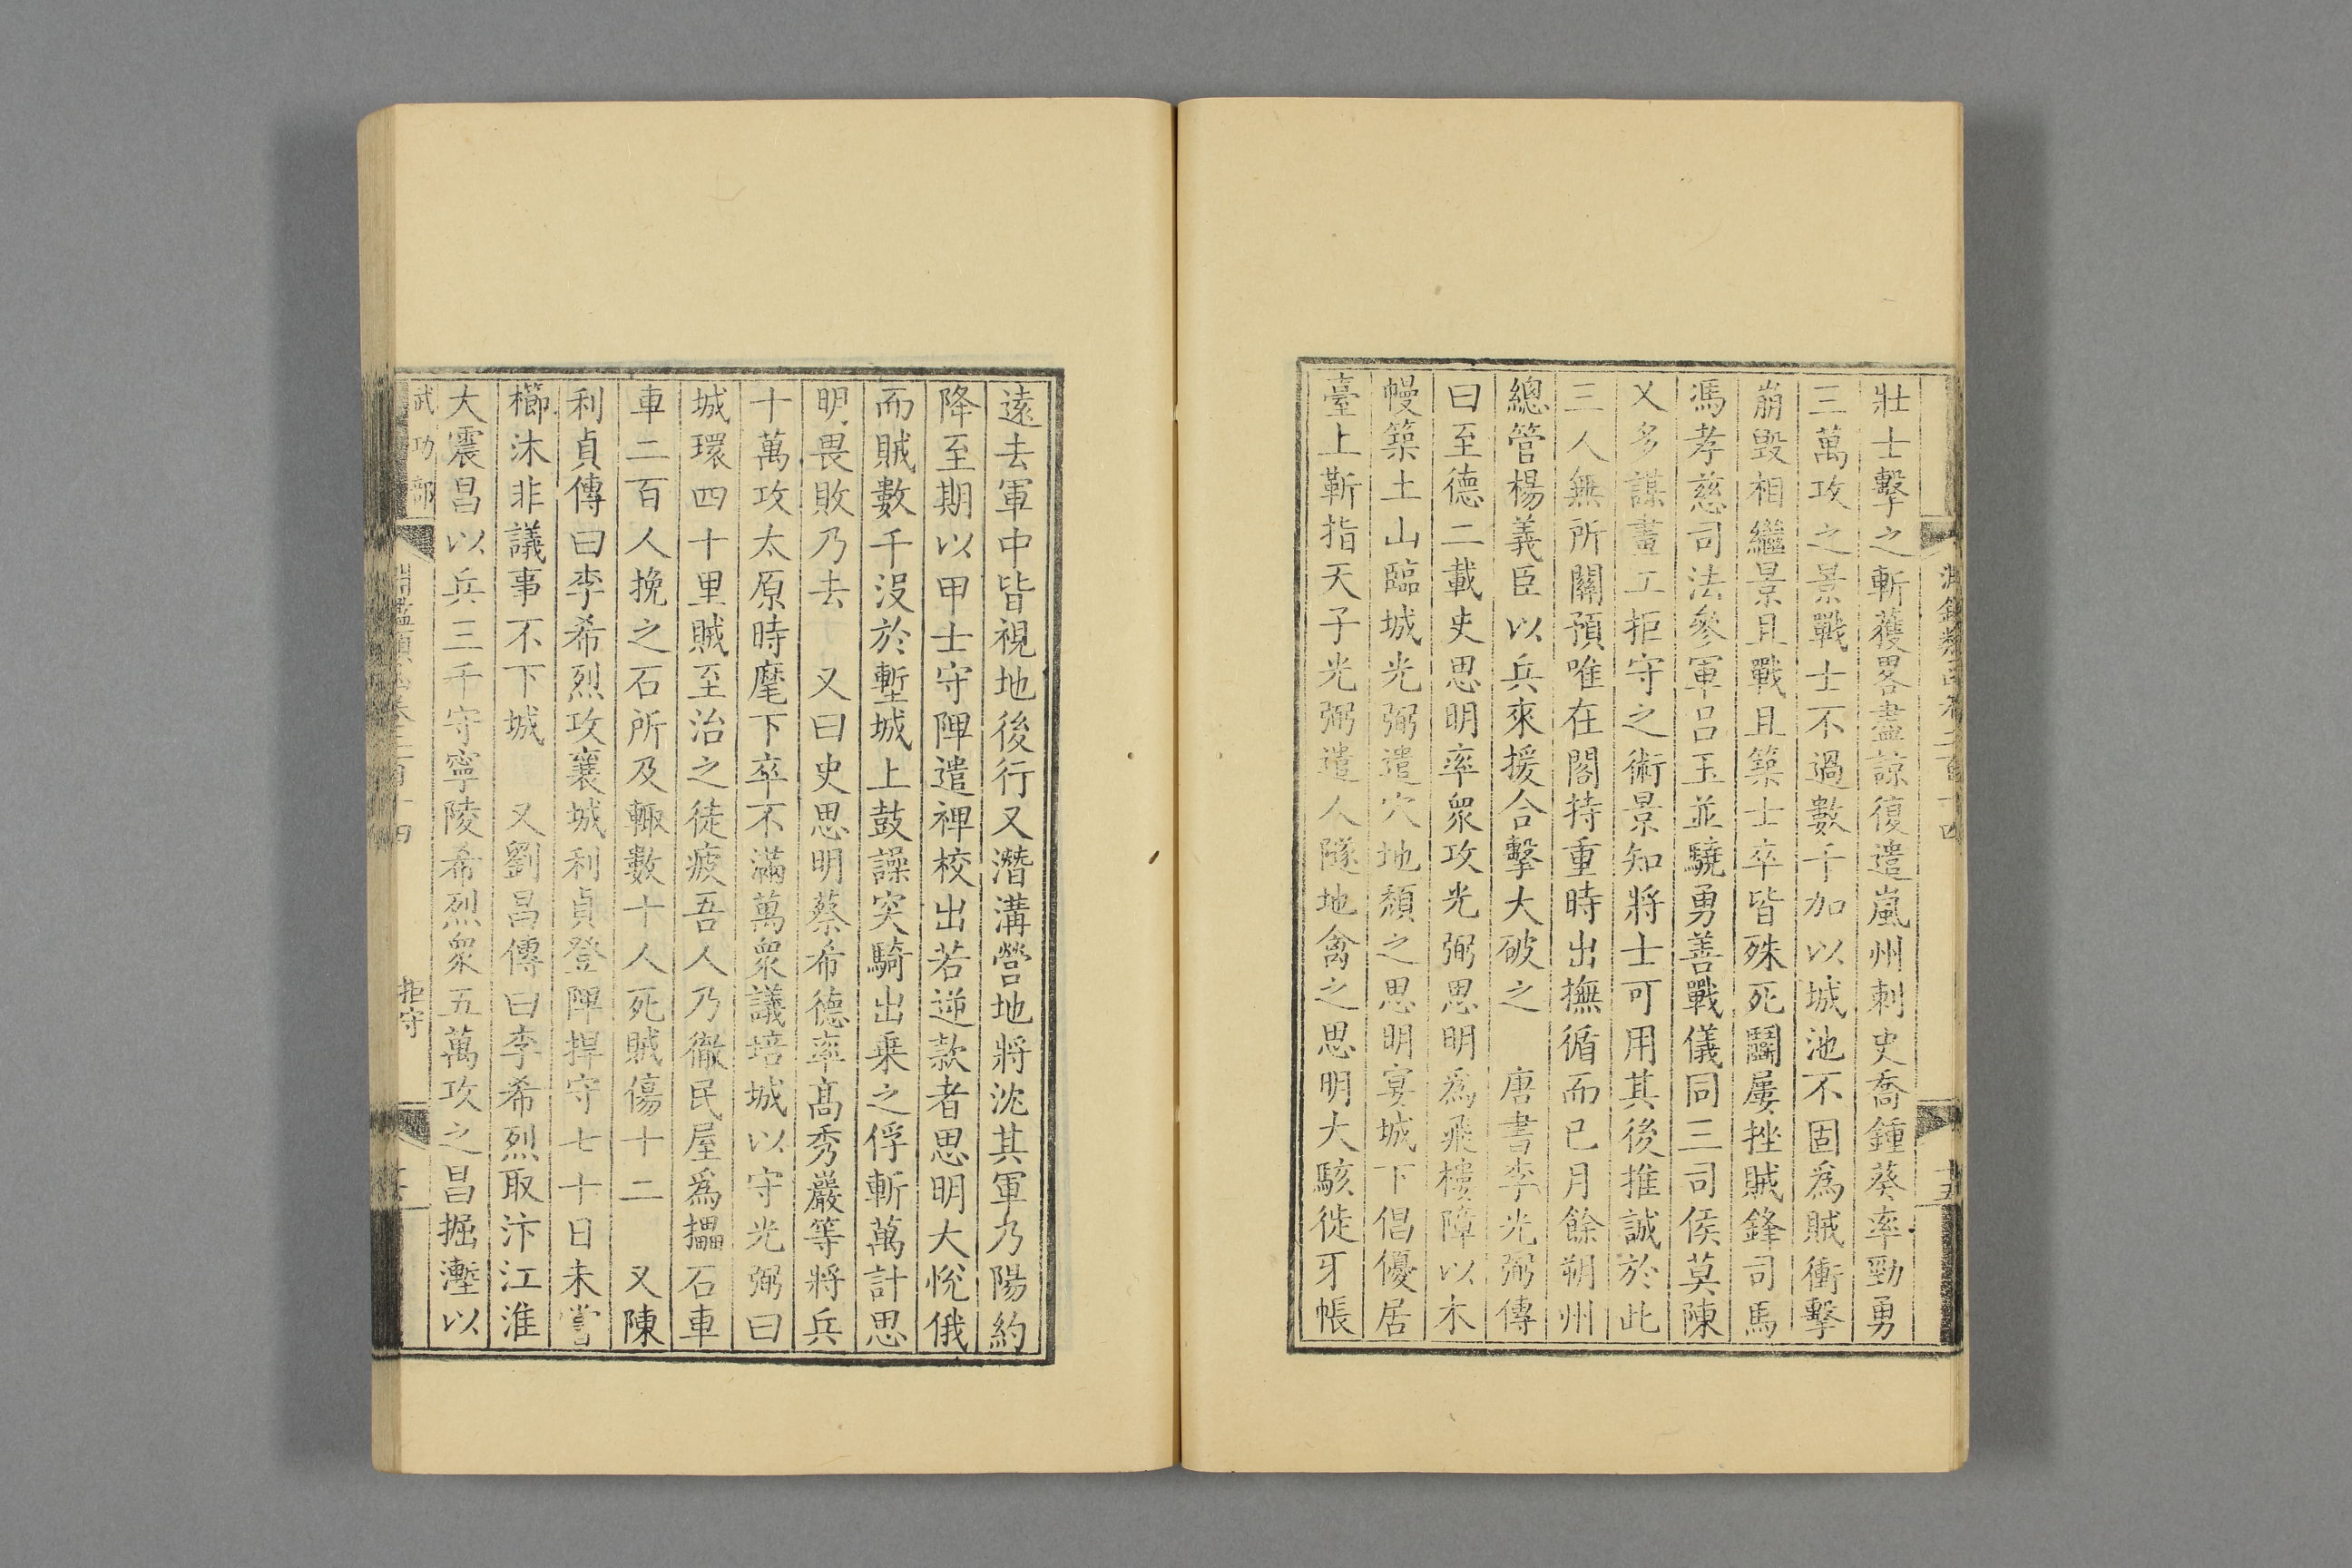 壯士擊之斬獲畧盡諒復遣嵐州刺史喬鍾葵率勁勇
三萬攻之景戰士不過數千加以城池不固爲賊衝擊
崩毀相繼景且戰且築士卒皆殊死鬬屢挫賊鋒司馬
馮孝慈司法參軍呂玉並驍勇善戰儀同三司侯莫陳
乂多謀畫工拒守之術景知將士可用其後推誠於此
三人無所關預唯在閤持重時出撫循而已月餘朔州
總管楊義臣以兵來援合擊大破之　唐書李光弼傳
曰至德二載史思明率衆攻光弼思明爲飛樓障以木
幔築土山臨城光弼遣穴地頹之思明宴城下倡優居
臺上靳指天子光弼遣人隧地禽之思明大駭徙牙帳
遠去軍中皆視地後行又潛溝營地將沈其軍乃陽約
降至期以甲士守陴遣裨校出若逆款者思明大悅俄
而賊數千沒於塹城上鼓譟突騎出乗之俘斬萬計思
明畏敗乃去　又曰史思明蔡希德率髙秀巖等將兵
十萬攻太原時麾下卒不滿萬衆議培城以守光弼曰
城環四十里賊至治之徒疲吾人乃徹民屋爲擂石車
車二百人挽之石所及輙數十人死賊傷十二　又陳
利貞傳曰李希烈攻襄城利貞登陴捍守七十日未嘗
櫛沐非議事不下城　又劉昌傳曰李希烈取汴江淮
大震昌以兵三千守寧陵希烈衆五萬攻之昌掘塹以
武功部
淵鑑類函卷二百十四
拒守